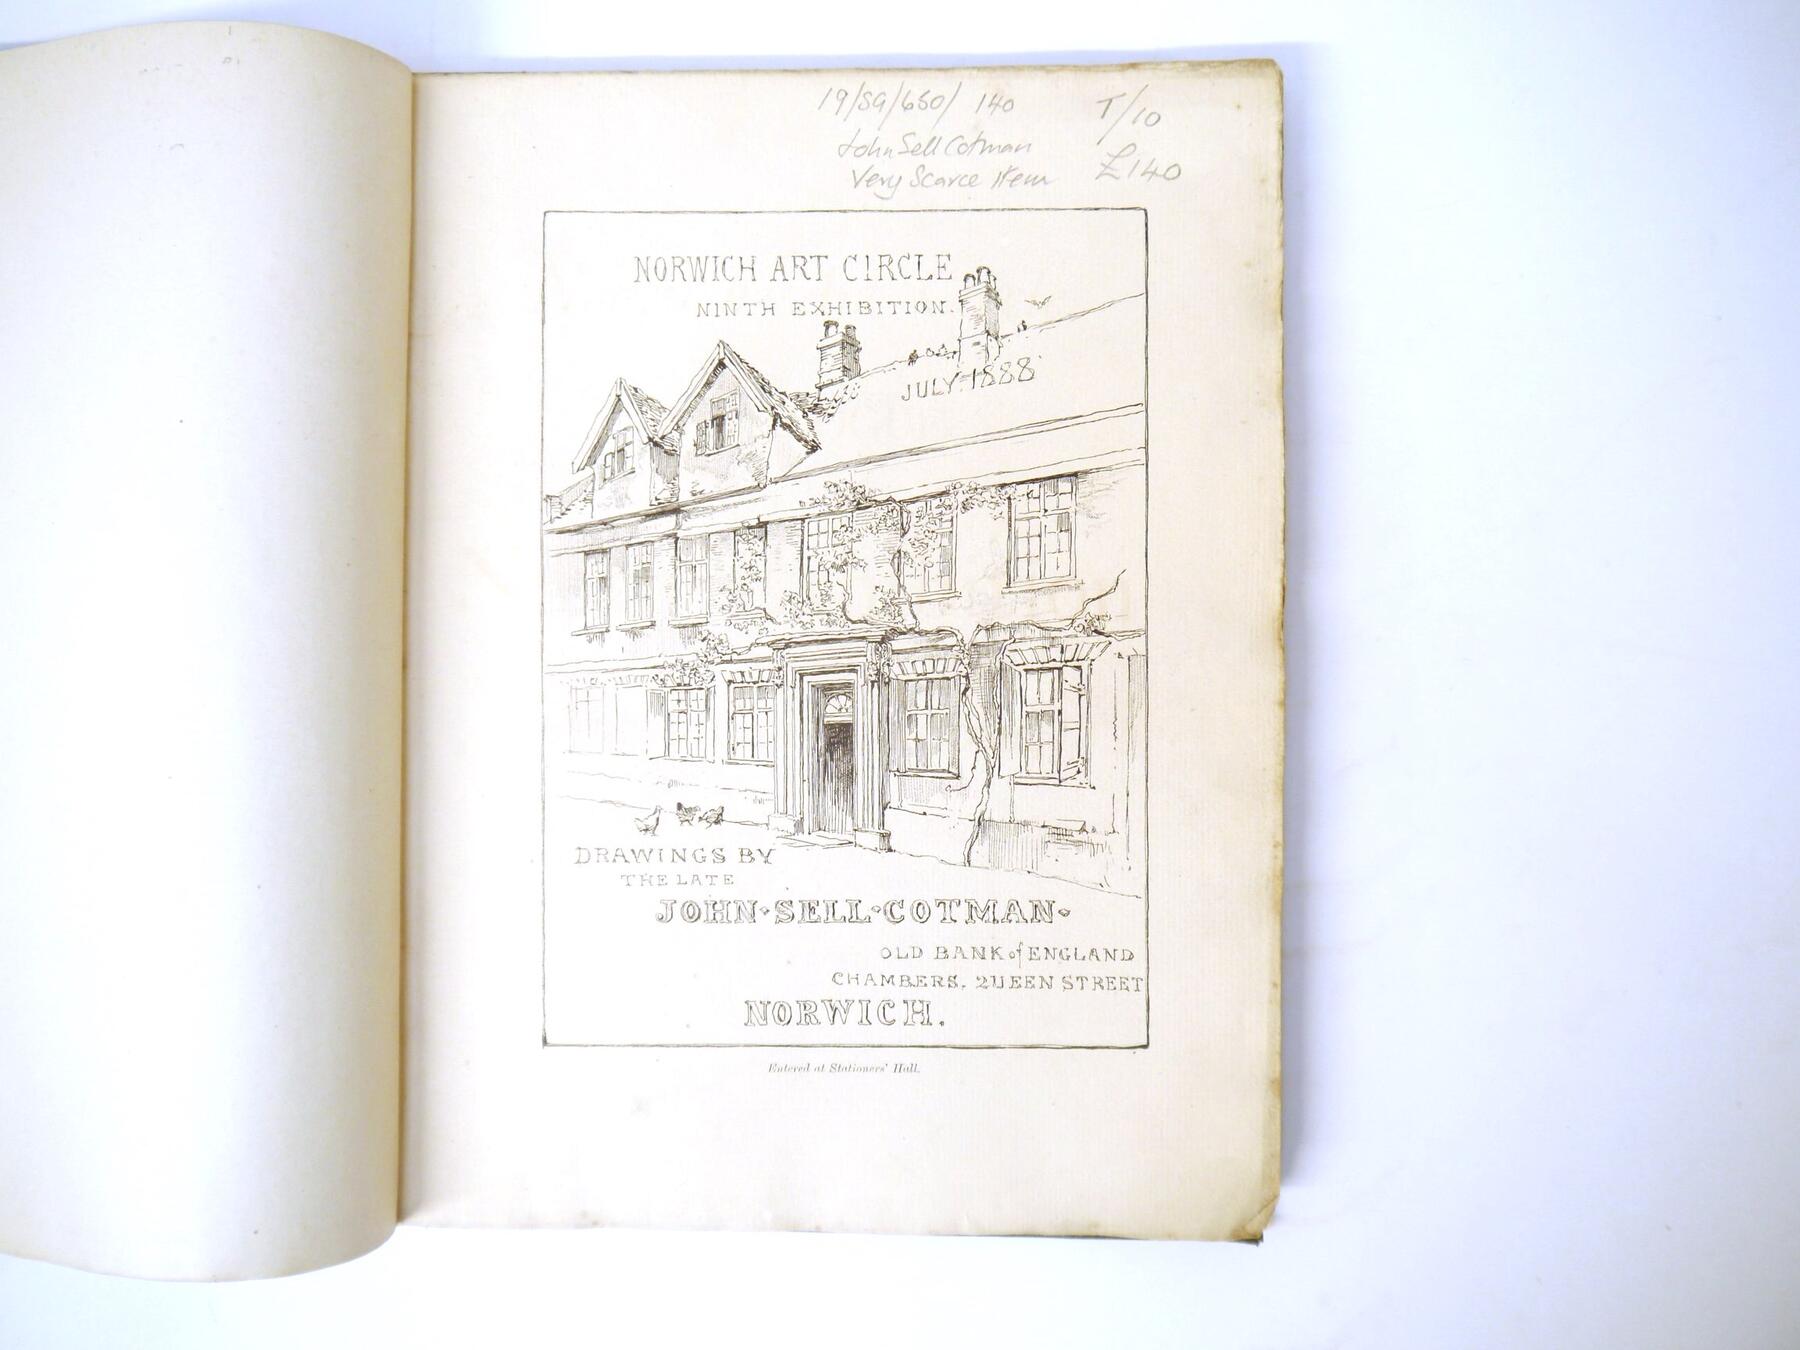 19/SG/650/ 140 T/10
John Sell Cotman
Very Scarce Item £140
NORWICH ART CIRCLE
NINTH EXHIBITION.
JULY. 1888
DRAWINGS BY
THE LATE
JOHN·SELL·COTMAN·
OLD BANK of ENGLAND
CHAMBERS. QUEEN STREET
NORWICH.
Entered at Stationers' Hall.